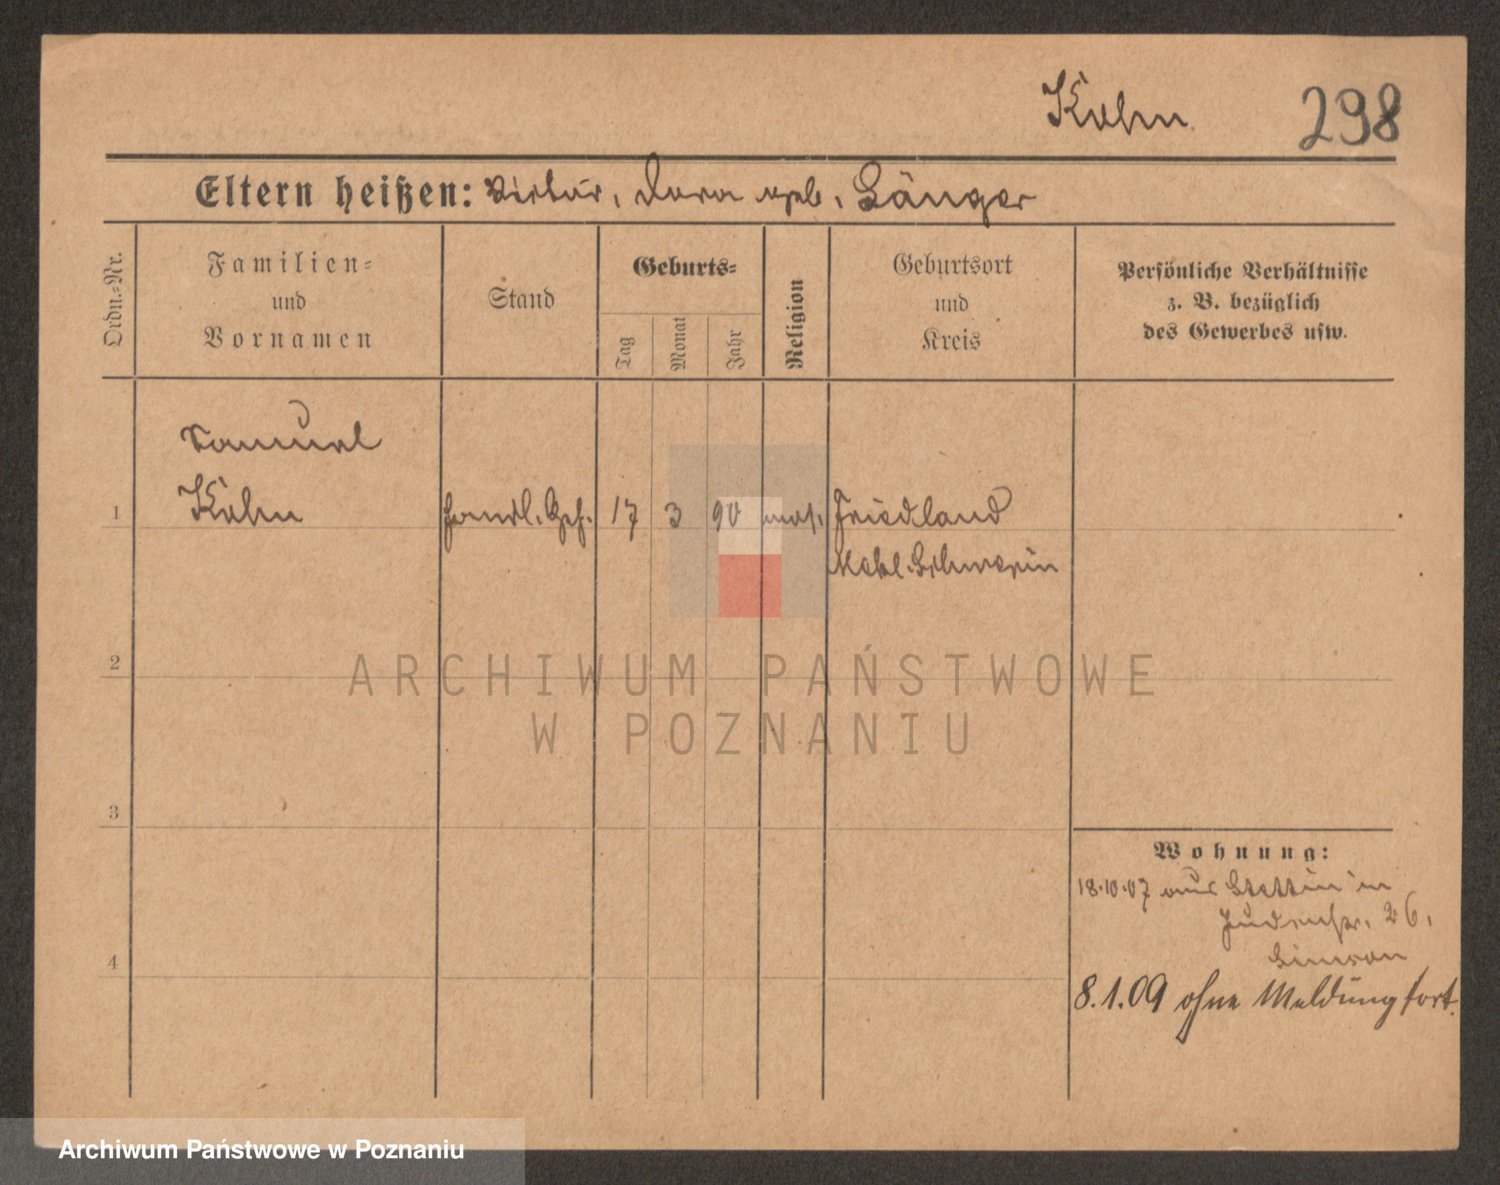 Kohn
298
Eltern heißen: Viktor, Dora geb. Sänger
Ordn.-Nr.
Familien- und Vornamen
Stand
Geburts-
Tag
Monat
Jahr
Religion
Geburtsort und Kreis
Persönliche Verhältnisse
z. B. bezüglich
des Gewerbes usw.
Samuel
1 Kohn Handl. Geh. 17 3 90 mos. Friedland
Mekl. Schwerin
2
3
4
Wohnung:
18.10.07 aus Stettin in
Judenstr. 26.
8.1.09 ohne Meldung fort.
ARCHIWUM PAŃSTWOWE
W POZNANIU
Archiwum Państwowe w Poznaniu